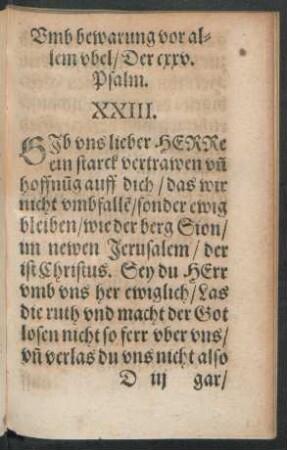 Vmb bewarung vor al-
lem vbel/ Der cxxv.
Psalm.
XXIII.
GIb vns lieber HERRe
ein starck vertrawen vñ
hoffnũg auff dich/ das wir
nicht vmbfallẽ/ sonder ewig
bleiben/ wie der berg Sion/
im newen Jerusalem/ der
ist Christus. Sey du HErr
vmb vns her ewiglich/ Las
die ruth vnd macht der Got
losen nicht so ferr vber vns/
vñ verlas du vns nicht also
D iij gar/